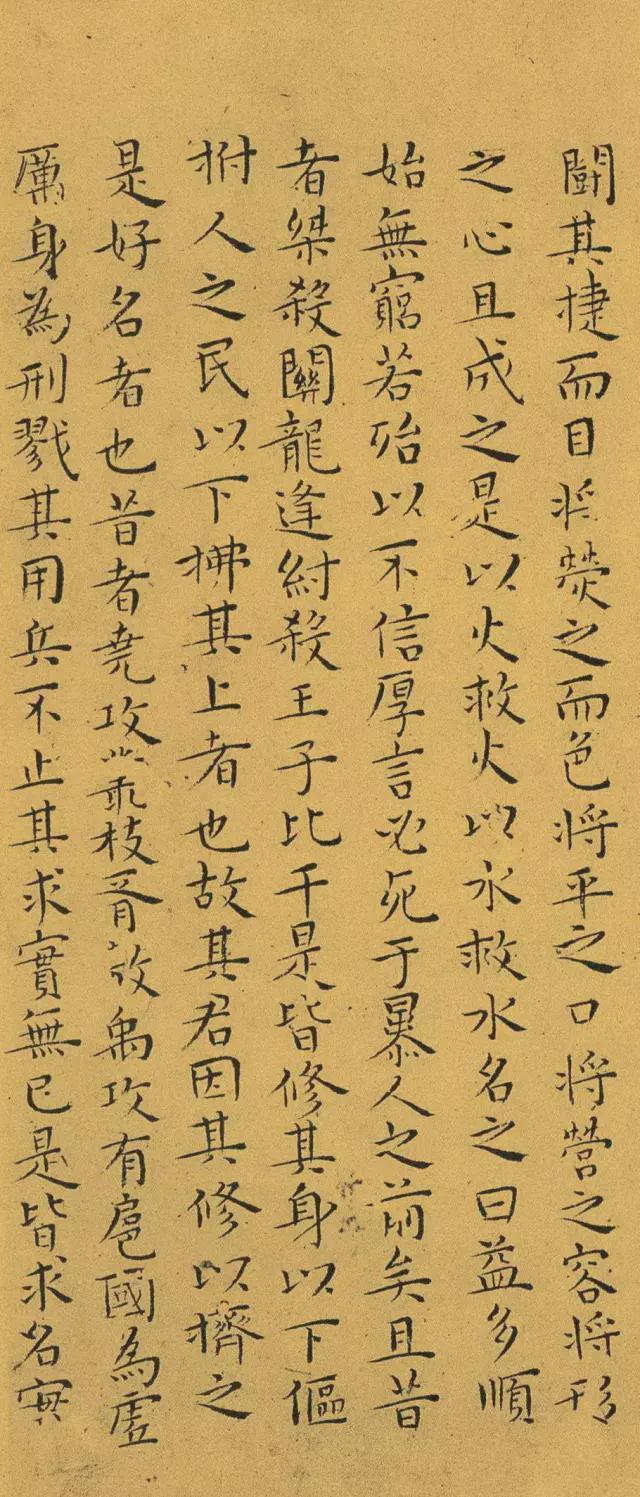 闘其捷而目将熒之而色将平之口将營之容将形
之心且成之是以火救火以水救水名之曰益多順
始無窮若殆以不信厚言必死于暴人之前矣且昔
者桀殺關龍逢紂殺王子比干是皆修其身以下傴
拊人之民以下拂其上者也故其君因其修以擠之
是好名者也昔者堯攻叢枝胥敖禹攻有扈國為虛
厲身為刑戮其用兵不止其求實無已是皆求名實